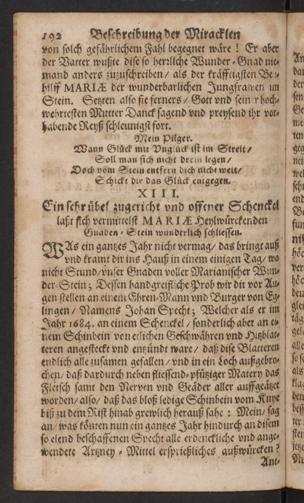 192 Beschreibung der Miracklen
von solch gefährlichem Fahl begegnet wäre! Er aber
der Vatter wußte dise so herrliche Wunder-Gnad nie-
mand anders zuzuschreiben / als der kräfftigsten Be-
hilff MARIÆ der wunderbarlichen Jungfrawen im
Stein. Setzten also sie ferners / Gott und sein
wehrtesten Mutter Danck sagend und preysend ihr vor-
habende Reyß schleunigst fort.
Mein Pilger.
Wann Glück mit Unglück ist im Streit /
Soll man sich nicht drein legen /
Doch vom Stein entfern dich nicht weit /
Schickt dir das Glück entgegen.
XIII.
Ein sehr übel zugericht und offener Schenckel
laßt sich vermittelst MARIÆ Heylwürckenden
Gnaden-Stein wunderlich schliessen.
WAs ein gantzes Jahr nicht vermag / das bringt auß
und kramt dir ins Hauß in einem einigen Tag / wo
nicht Stund / unser Gnaden voller Marianischer Wun-
der-Stein; Dessen handgreifliche Prob wir dir vor Au-
gen stellen an einem Ehren-Mann und Burger von Eg-
lingen / Namens Johan Specht; Welcher als er im
Jahr 1684. an einem Schenckel / sonderlich aber an ei-
nem Schinbein von etlichen Geschwähren und Hitzblat-
teren angesteckt und enzündt ware / daß dise Blatteren
endlich alle zusamen gefallen / und in ein Loch außgebro-
chen / daß dardurch neben fliessend-pfütziger Matery das
Fleisch samt den Nerven und Geäder aller außgeätzet
worden / also / daß das bloß ledige Schinbein vom Knye
biß zu dem Rist hinab grewlich herauß sahe: Mein / sag
an / was könten nun ein gantzes Jahr hindurch an disem
so elend beschaffenen Specht alle erdenckliche und ange-
wendete Artzney-Mittel ersprießliches außwürcken?
Ant-